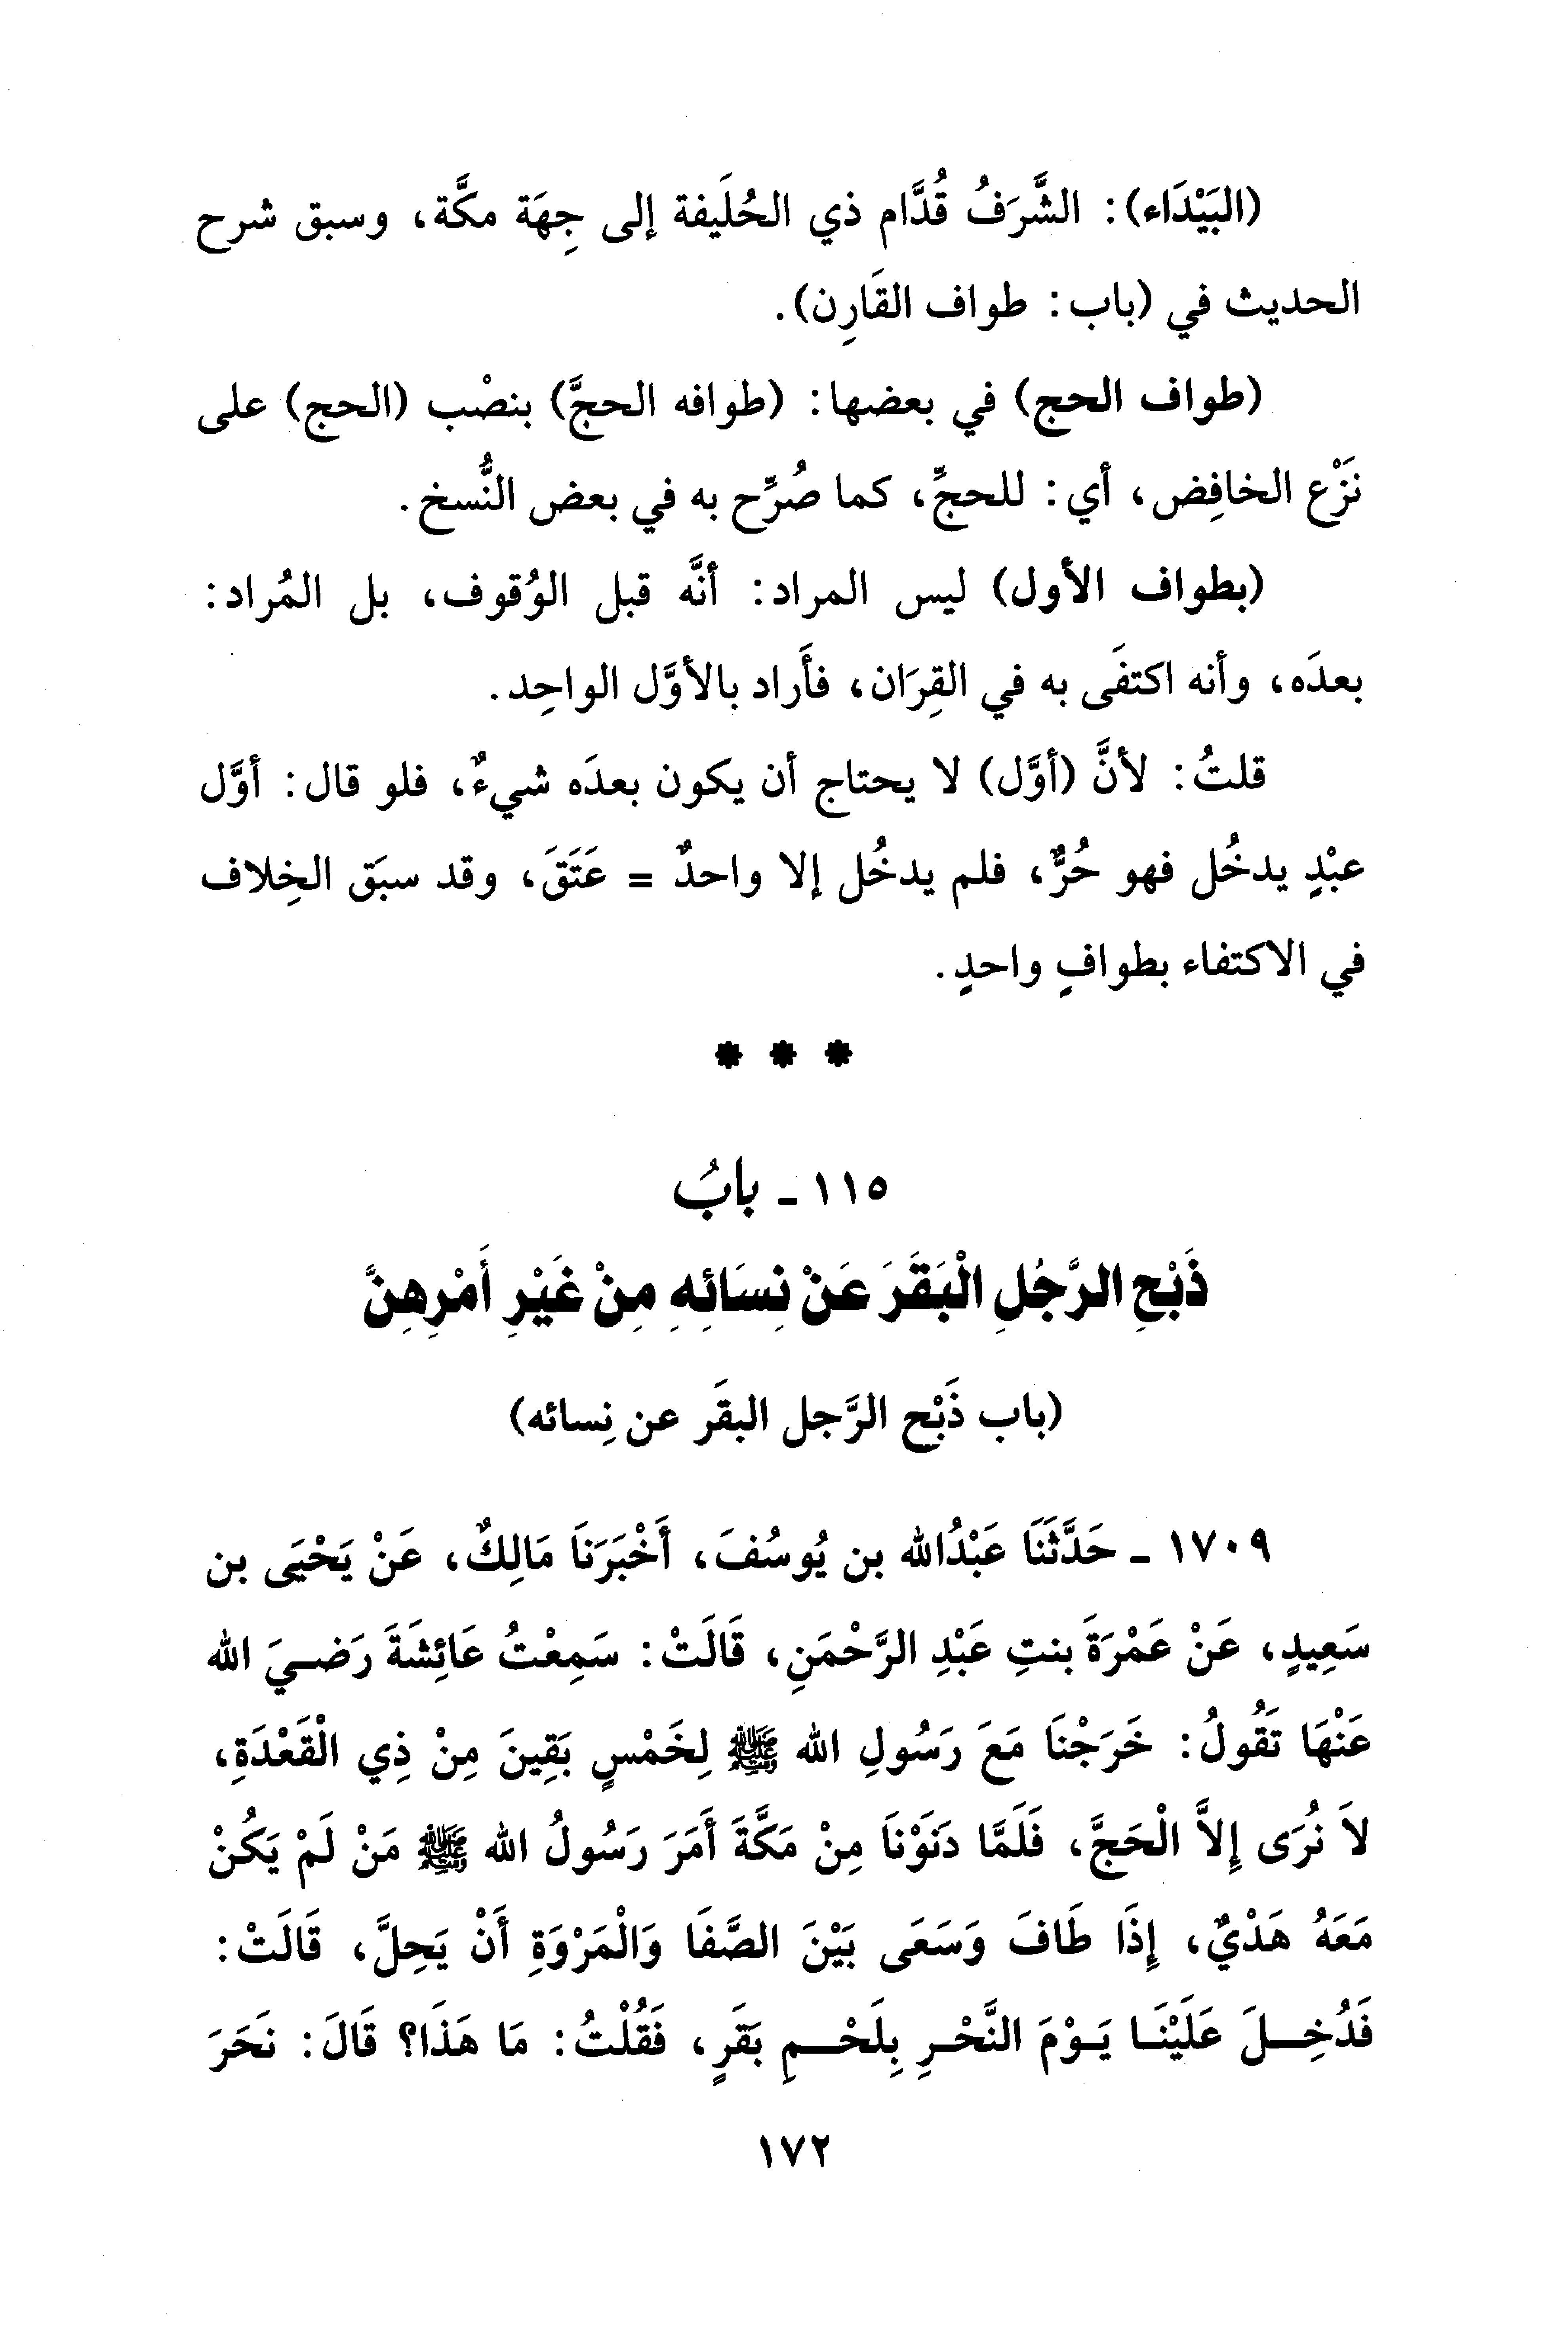 (البَيْدَاء): الشَّرَفُ قُدَّام ذي الحُلَيفة إلى جِهَة مكَّة، وسبق شرح
الحديث في (باب: طواف القَارِن).
(طواف الحج) في بعضها: (طوافه الحجَّ) بنصْب (الحج) على
نَزْع الخافِض، أي: للحجِّ، كما صُرِّح به في بعض النُّسخ.
(بطواف الأول) ليس المراد: أنَّه قبل الوُقوف، بل المُراد:
بعدَه، وأنه اكتفَى به في القِرَان، فأَراد بالأوَّل الواحِد.
قلتُ: لأنَّ (أوَّل) لا يحتاج أن يكون بعدَه شيءٌ، فلو قال: أوَّل
عبْدٍ يدخُل فهو حُرٌّ، فلم يدخُل إلا واحدٌ = عَتَقَ، وقد سبَق الخِلاف
في الاكتفاء بطوافٍ واحدٍ.
* * *
١١٥ - بابُ
ذَبْحِ الرَّجُلِ الْبَقَرَ عَنْ نِسَائِهِ مِنْ غَيْرِ أَمْرِهِنَّ
(باب ذَبْح الرَّجل البقَر عن نِسائه)
١٧٠٩ - حَدَّثَنَا عَبْدُالله بن يُوسُفَ، أَخْبَرَنَا مَالِكٌ، عَنْ يَحْيَى بن
سَعِيدٍ، عَنْ عَمْرَةَ بنتِ عَبْدِ الرَّحْمَنِ، قَالَتْ: سَمِعْتُ عَائِشَةَ رَضِيَ الله
عَنْهَا تَقُولُ: خَرَجْنَا مَعَ رَسُولِ الله ﷺ لِخَمْسٍ بَقِينَ مِنْ ذِي الْقَعْدَةِ،
لاَ نُرَى إِلاَّ الْحَجَّ، فَلَمَّا دَنَوْنَا مِنْ مَكَّةَ أَمَرَ رَسُولُ الله ﷺ مَنْ لَمْ يَكُنْ
مَعَهُ هَدْيٌ، إِذَا طَافَ وَسَعَى بَيْنَ الصَّفَا وَالْمَرْوَةِ أَنْ يَحِلَّ، قَالَتْ:
فَدُخِلَ عَلَيْنَا يَوْمَ النَّحْرِ بِلَحْمِ بَقَرٍ، فَقُلْتُ: مَا هَذَا؟ قَالَ: نَحَرَ
١٧٢